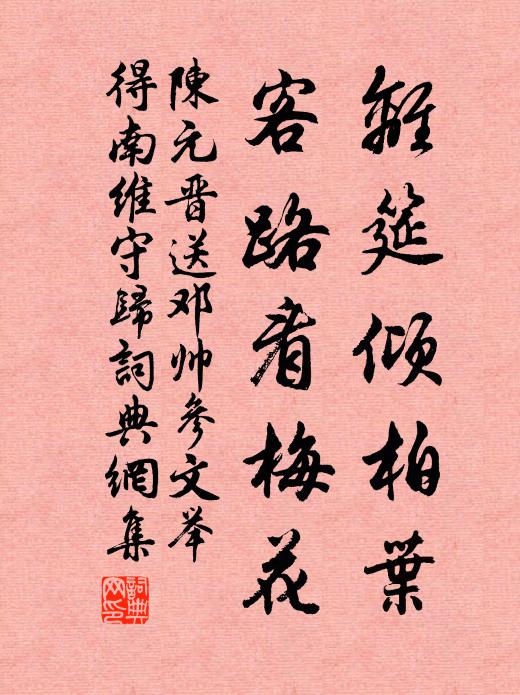 離筵傾柏葉
客路看梅花
陳元晋送邓帅參文举
得南維守歸詞典網集
詞典網印